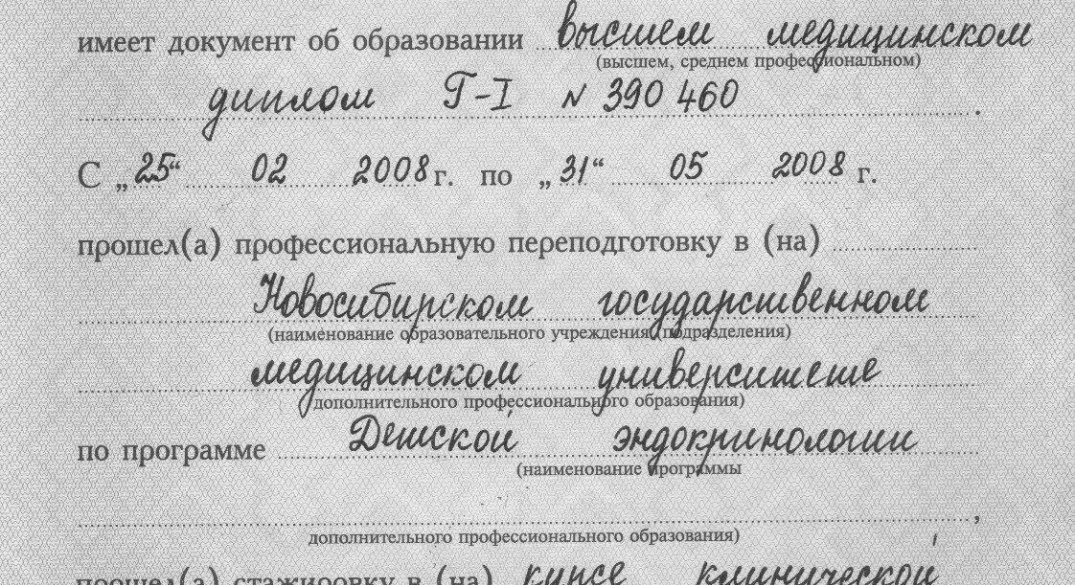 имеет документ об образовании высшем медицинском
(высшем, среднем профессиональном)
диплом Г-I № 390 460 .
С „25“ 02 2008 г. по „31“ 05 2008 г.
прошел(а) профессиональную переподготовку в (на)
Новосибирском государственном
(наименование образовательного учреждения (подразделения)
медицинском университете
дополнительного профессионального образования)
по программе Детской эндокринологии
(наименование программы
,
дополнительного профессионального образования)
прошел(а) стажировку в (на) курсе клинической